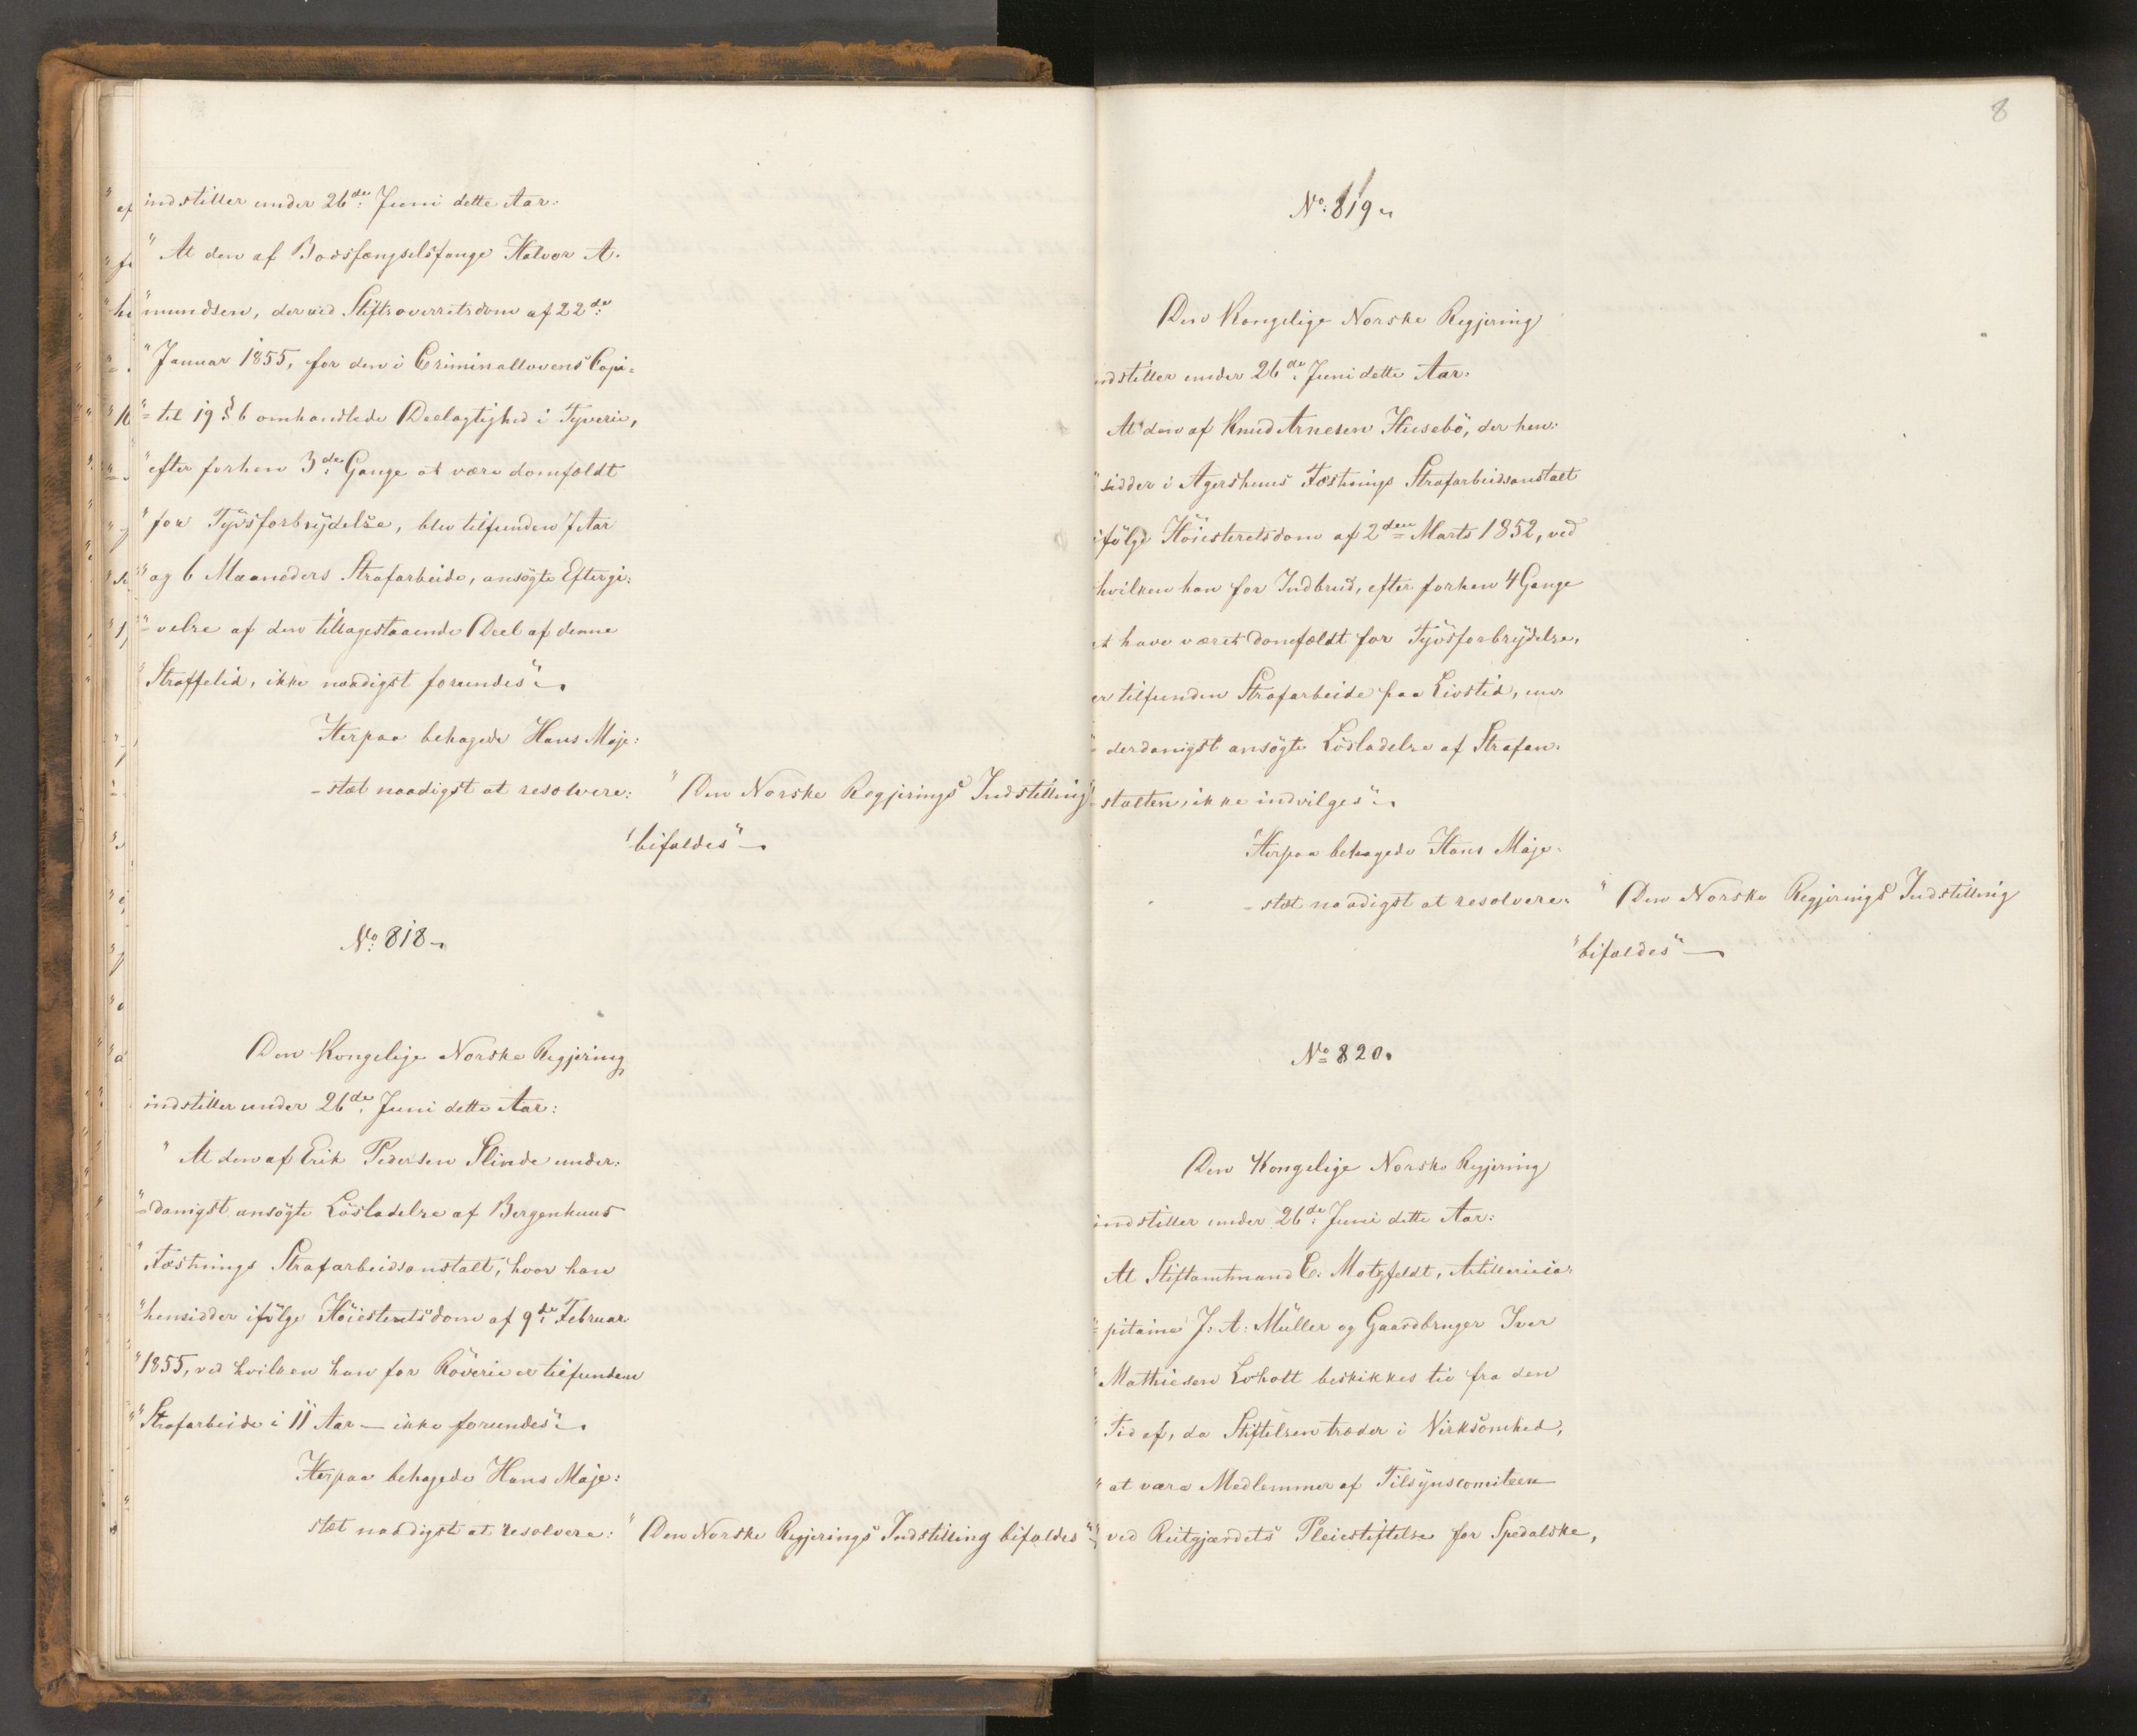 indstiller under 26de Juni dette Aar:
"At den af Bodsfængselsfange Halvor A-
"mundsen, der ved Stiftsoverretsdom af 22de
"Januar 1855, for den i Criminallovens Capi=
"=tel 19 § 6 omhandlede Deelagtighed i Tyverie,
"efter forhen 3de Gange at være domfældt
"for Tyvsforbrydelse, blev tilfunden 7 Aar
"og 6 Maaneders Strafarbeide, ansøgte Eftergi:
"=velse af den tilbagestaaende Deel af denne
"Straffetid, ikke naadigst forundes".
Herpaa behagede Hans Maje:
-stæt naadigst at resolvere: "Den Norske Regjerings Indstilling
"bifaldes"
No: 818.
Den Kongelige Norske Regjering
indstiller under 26de Juni dette Aar:
"At den af Erik Pedersen Slinde under:
"=danigst ansøgte Løsladelse af Bergenhuus
"Fæstnings Strafarbeidsanstalt, hvor han
"hensidder ifølge Høiesteretsdom af 9de Februar
"1855, ved hvilken han for Røverie er tilfunden
"Strafarbeide i 11 Aar — ikke forundes".
Herpaa behagede Hans Maje:
stæt naadigst at resolvere: "Den Norske Regjerings Indstilling bifaldes"
8
No: 819.
Den Kongelige Norske Regjering
indstiller under 26de Juni dette Aar:
At den af Knud Arnesen Husebø, der hen:
"sidder i Agershuus Fæstnings Strafarbeidsanstalt
ifølge Høiesteretsdom af 2den Marts 1852, ved
hvilken han for Indbrud, efter forhen 4 Gange
at have været domfældt for Tyvsforbrydelse,
er tilfunden Strafarbeide paa Livstid, un-
=derdanigst ansøgte Løsladelse af Strafan:
-stalten, ikke indvilges".
Herpaa behagede Hans Maje-
-stæt naadigst at resolvere: "Den Norske Regjerings Indstilling
"bifaldes"
No 820.
Den Kongelige Norske Regjering
indstiller under 26de Juni dette Aar:
At Stiftamtmand C. Motzfeldt, Artilleriea-
"=pitaine J: A: Müller og Gaardbruger Iver
"Mathiesen Loholt beskikkes til fra den
"Tid af, da Stiftelsen træder i Virksomhed,
"at være Medlemmer af Tilsynscomiteen
"ved Reitgjærdets Pleiestiftelse for Spedalske,